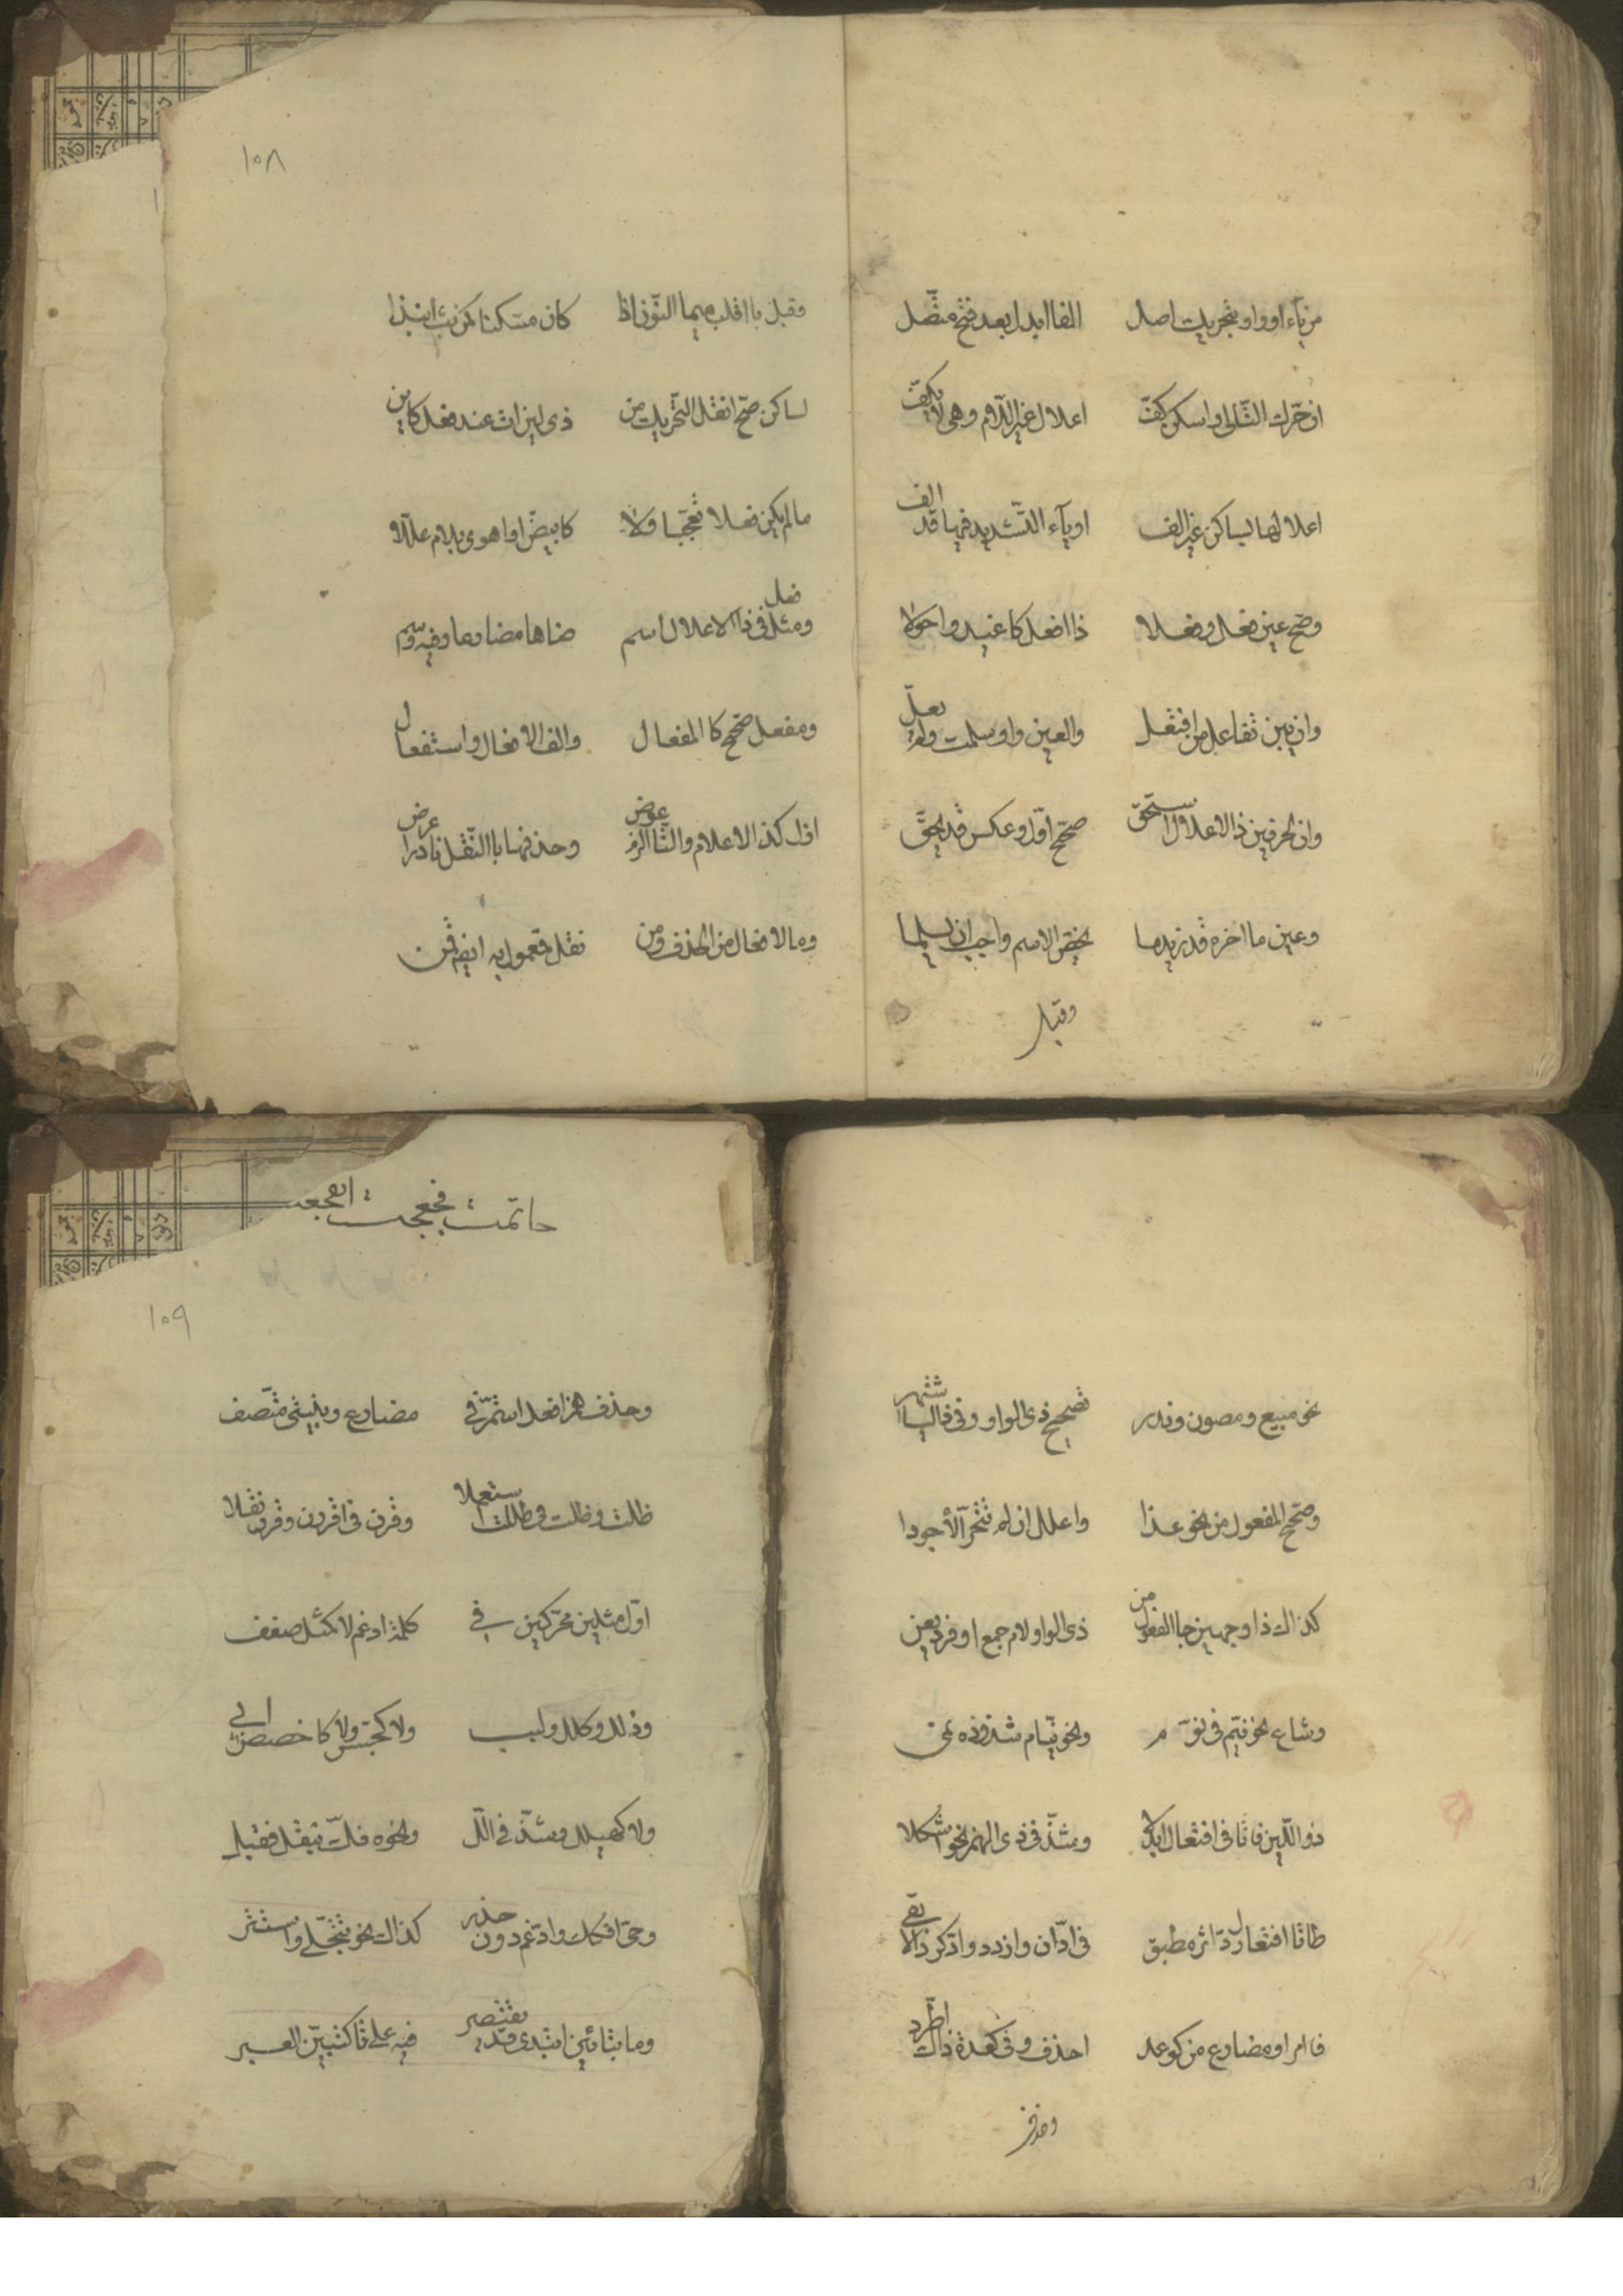 من ياء او واو بتحريك اصل الفا ابدل بعد فتح متصل
ان حرّك التالي وان سكن كفّ اعلال غير اللام وهي لا يكفّ
اعلالها بساكن غير الف او ياء التّشديد فيها قد الف
وصح عين فعل وفعلا ذا افعل كاغيد واحولا
وان يبن تفاعل من افتعل والعين واو سلمت ولم يعلّ
وان لحرفين ذا الاعلال استحقّ صحّح اوّل وعكس قد يحقّ
وعين ما اخره قد زيد ما يخصّ الاسم واجب ان يسلما
وقبل
١٠٨
وقبل با اقلب ميما النّون اذا كان مسكنا كمن بتّ انبذا
لساكن صحّ انقل التّحريك من ذي لين ات عند فعل كاين
ما لم يكن فعلا تعجّبا ولا كابيضّ او اهوى بلام علّلا
ومثل فعل في ذا الاعلال اسم ضاها مضارعا وفيه وسم
ومفعل صحّح كا المفعال والف الافعال واستفعال
ازل كذا الاعلام والتّا الزم عوض وحذفها با النّقل نادرا عرض
وما لافعال من الحذف ومن نقل فمعمول به ايضا قمن
نحو مبيع ومصون وندر تصحيح ذي الواو وفي ذا اليا اشتهر
وصحّح المفعول من نحو عدا واعلل ان لم تتحرّ الأجودا
كذاك ذا وجهين جا الفعول من ذي الواو لام جمع او فرد يعن
وشاع نحو نيّم في نوّم ونحو نيّام شذوذه نمي
ذو اللّين فا تا في افتعال ابدلا وشذّ في ذي الهمز نحو اتكلا
طا تا افتعال ردّ اثر مطبق في ادّان وازدد وادّكر دالا بقي
فا امر او مضارع من كوعد احذف وفي كعدة ذاك اطّرد
وحذف
١٠٩
وحذف همز افعل استمرّ في مضارع وبنيتي متّصف
ظلت وظلت في ظللت استعملا وقرن في اقررن وقرن نقلا
اوّل مثلين محرّكين في كلمة ادغم لا كمثل صفف
وذلل وكلل ولبب ولا كجسّس ولا كاخصص ابي
ولا كهيلل وشذّ في الل ونحوه فكّ بنقل فقبل
وحيي افكك وادّغم دون حذر كذاك نحو تتجلّى واستتر
وما بتائين ابتدي قد يقتصر فيه على تا كتبيّن العبر